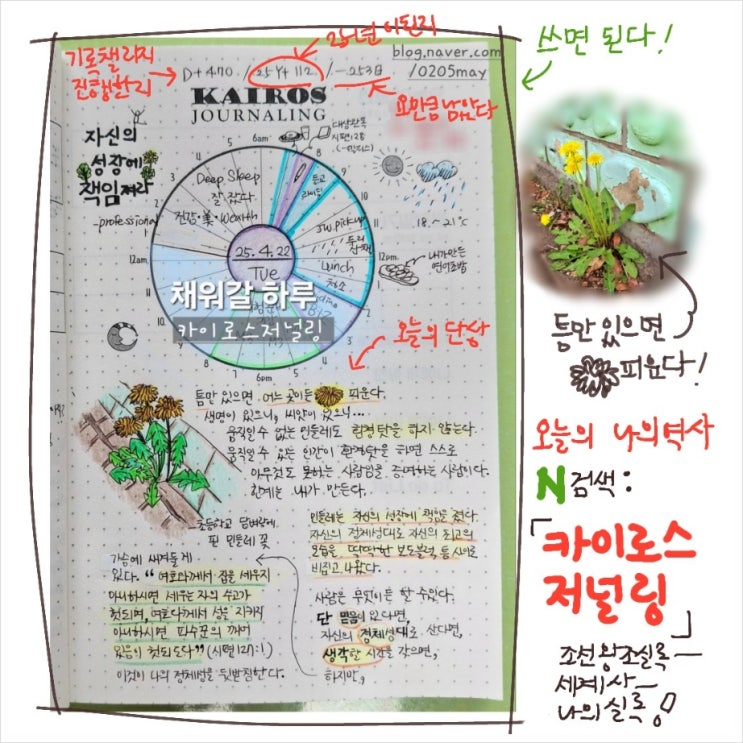 기록챌린지
진행한지
25년이 된지
blog.naver.com
/0205may
D+470 /25Y+112 /-253일
요만큼 남았다
쓰면 된다!
KAIROS
JOURNALING
자신의
성장에
책임져라
-professional
6am
Deep Sleep
잘 잤다
건강·美·Wealth
JW.pickup
Lunch
청소
18.~21℃
12am
12pm
내가 만든
25.4.22
Tue
채워갈 하루
카이로스저널링
6pm
오늘의 단상
틈만 있으면
피운다!
틈만 있으면 어느 곳이든 피운다.
생명이 있으니, 씨앗이 있으니...
움직일 수 없는 민들레도 환경탓을 하지 않는다.
움직일 수 있는 인간이 환경탓을 하면 스스로
아무것도 못하는 사람임을 증명하는 사람이다.
한계는 내가 만든다.
초등학교 담벼락에
핀 민들레 꽃
민들레는 자신의 성장에 책임을 졌다.
자신의 정체성대로 자신의 최고의
모습을, 딱딱한 보도블럭 틈 사이로
비집고 나왔다.
가슴에 새겨둘 게
있다. "여호와께서 집을 세우지
아니하시면 세우는 자의 수고가
헛되며, 여호와께서 성을 지키지
아니하시면 파수꾼의 깨어
있음이 헛되도다" (시편 127:1)
이것이 나의 정체성을 뒷받침한다.
사람은 무엇이든 할 수 있다.
단 믿음이 있다면,
자신의 정체성대로 산다면,
생각한 시간을 갖으면,
하지만,
오늘의 나의 역사
N검색:
「카이로스
저널링」
조선왕조실록
세계사
나의 실록!